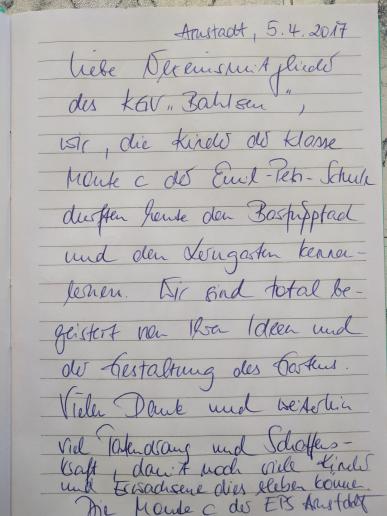 Arnstadt, 5.4.2017
Liebe Vereinsmitglieder
des KGV „Bahlsen",
wir, die Kinder der Klasse
Monte c der Emil-Petri-Schule
durften heute den Barfußpfad
und den Lerngarten kennen-
lernen. Wir sind total be-
geistert von Ihren Ideen und
der Gestaltung des Gartens.
Vielen Dank und weiterhin
viel Tatendrang und Schaffens-
kraft, damit noch viele Kinder
und Erwachsene dies erleben können.
Die Monte c der EPS Arnstadt